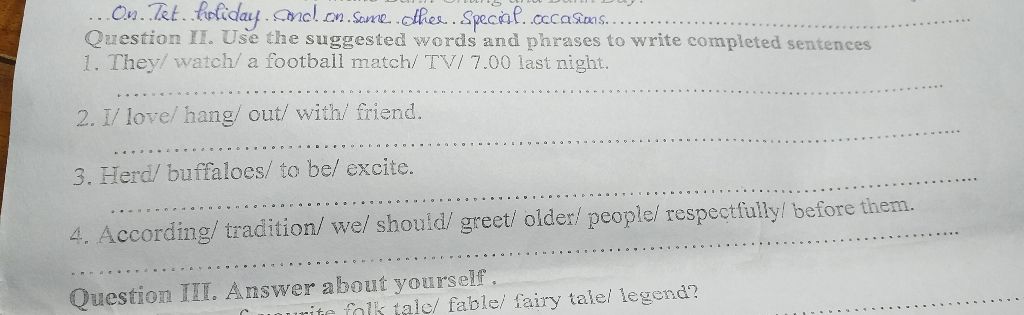 On Tet holiday and on some other special occasions
Question II. Use the suggested words and phrases to write completed sentences
1. They/ watch/ a football match/ TV/ 7.00 last night.
2. I/ love/ hang/ out/ with/ friend.
3. Herd/ buffaloes/ to be/ excite.
4. According/ tradition/ we/ should/ greet/ older/ people/ respectfully/ before them.
Question III. Answer about yourself.
folk tale/ fable/ fairy tale/ legend?